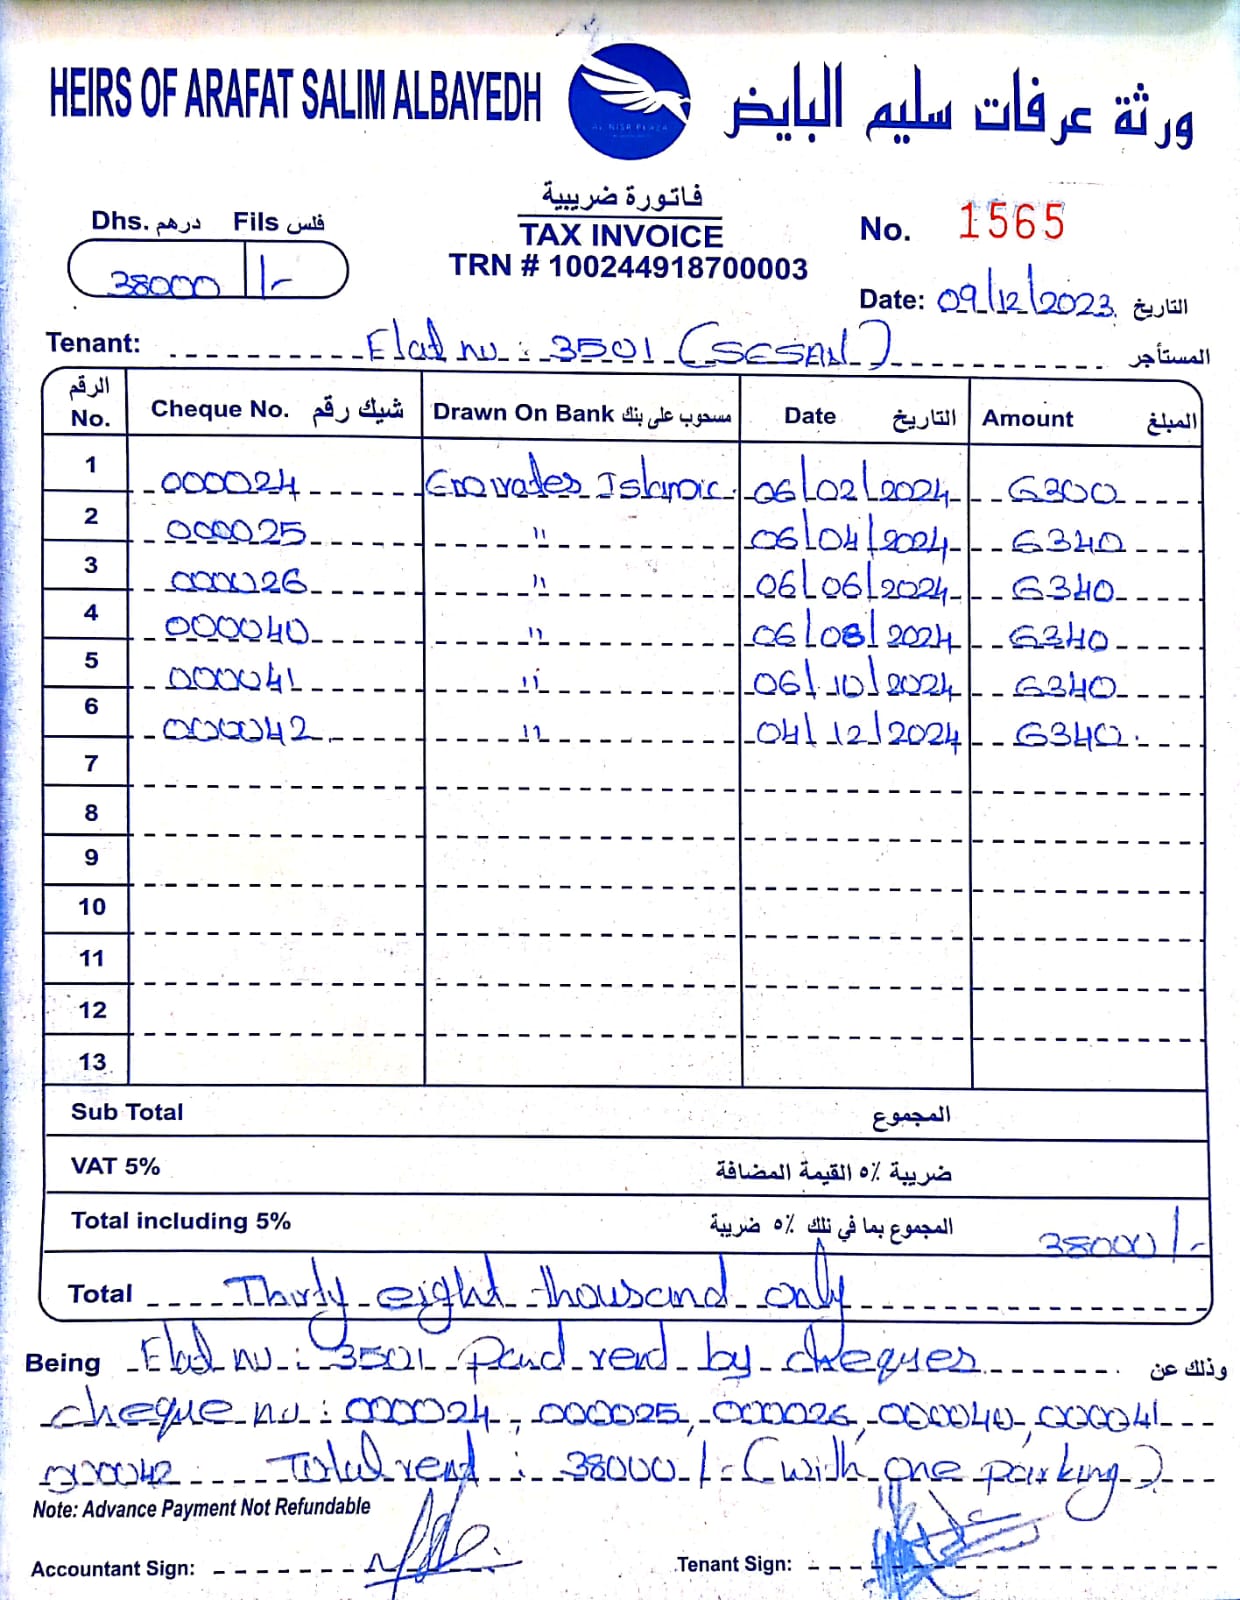 HEIRS OF ARAFAT SALIM ALBAYEDH
AL NISR PLAZA
ورثة عرفات سليم البايض
Dhs. درهم Fils فلس
38000 /-
فاتورة ضريبية
TAX INVOICE
TRN # 100244918700003
No. 1565
Date: 09/12/2023 التاريخ
Tenant: Flat no : 3501 (SESAN) المستأجر
الرقم No. Cheque No. شيك رقم Drawn On Bank مسحوب على بنك Date التاريخ Amount المبلغ
1 000024 Emirates Islamic 06/02/2024 6300
2 000025 " 06/04/2024 6340
3 000026 " 06/06/2024 6340
4 000040 " 06/08/2024 6340
5 000041 " 06/10/2024 6340
6 000042 " 04/12/2024 6340
7
8
9
10
11
12
13
Sub Total المجموع
VAT 5% ضريبة ٥٪ القيمة المضافة
Total including 5% المجموع بما في تلك ٥٪ ضريبة 38000/-
Total Thirty eight thousand only
Being Flat no : 3501 Paid rent by cheques وذلك عن
cheque no : 000024, 000025, 000026, 000040, 000041
000042 Total rent : 38000/- (with one parking)
Note: Advance Payment Not Refundable
Accountant Sign: Tenant Sign: